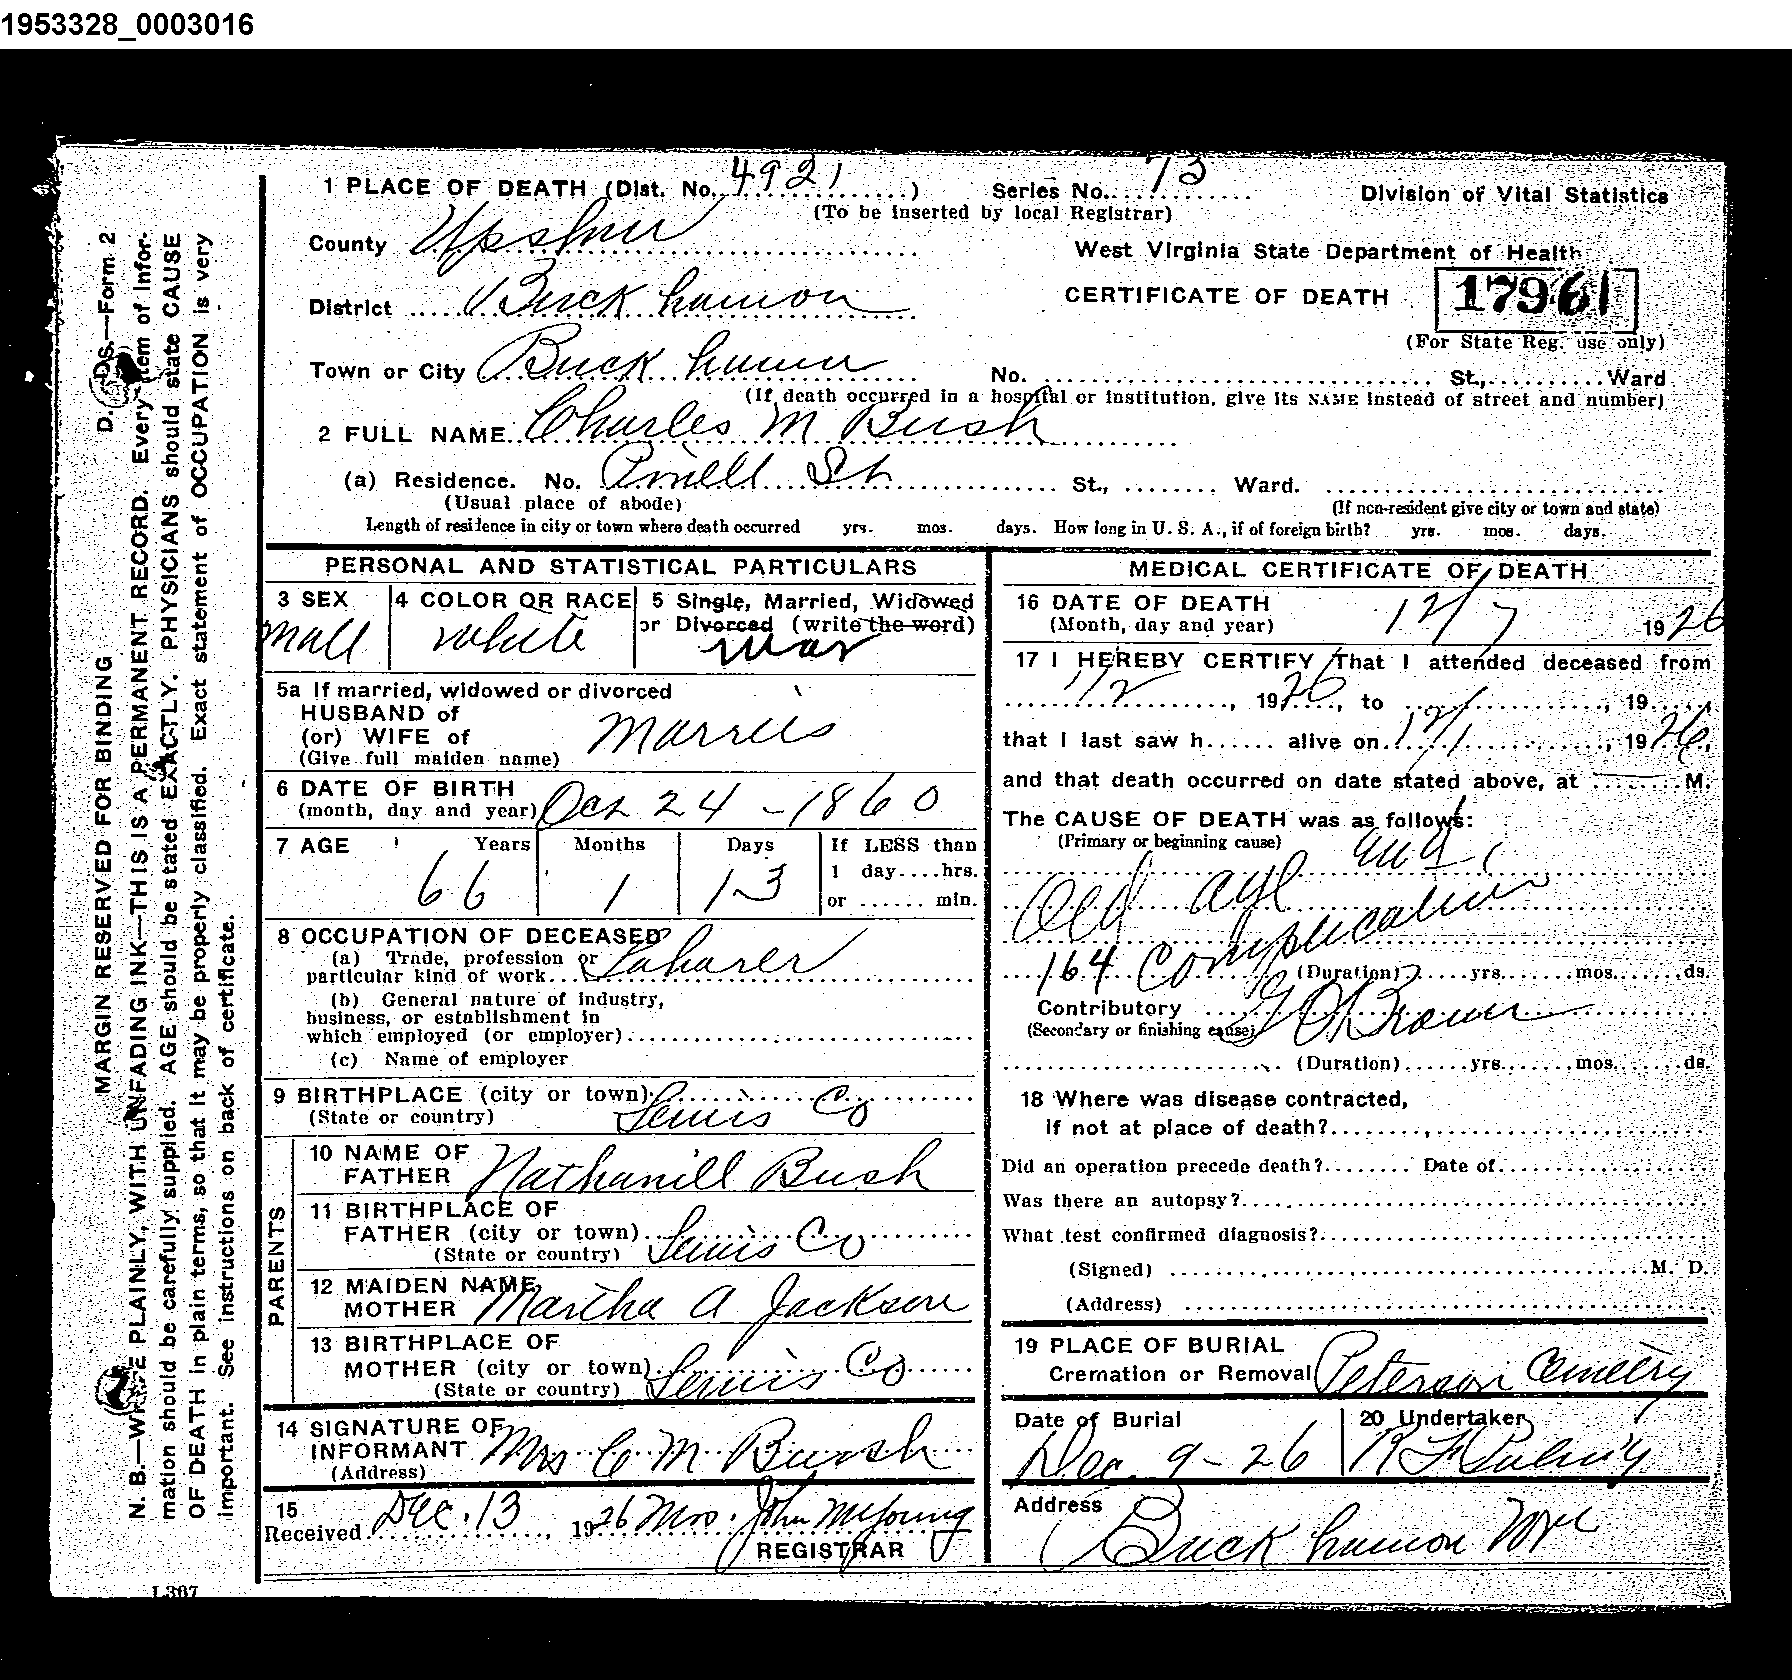 1953328_0003016
1 PLACE OF DEATH (Dist. No. 4921) Series No. 73 Division of Vital Statistics
(To be inserted by local Registrar)
County Upshur West Virginia State Department of Health
District Buckhannon CERTIFICATE OF DEATH 17961
(For State Reg. use only)
Town or City Buckhannon No. St., Ward
(If death occurred in a hospital or institution, give its NAME instead of street and number)
2 FULL NAME Charles M Bush
(a) Residence. No. St St., Ward.
(Usual place of abode) (If non-resident give city or town and state)
Length of residence in city or town where death occurred yrs. mos. days. How long in U. S. A., if of foreign birth? yrs. mos. days.
PERSONAL AND STATISTICAL PARTICULARS
3 SEX 4 COLOR OR RACE 5 Single, Married, Widowed
or Divorced (write the word)
Mall White Mar
5a If married, widowed or divorced
HUSBAND of
(or) WIFE of
(Give full maiden name)
6 DATE OF BIRTH
(month, day and year) Oct 24 - 1860
7 AGE Years Months Days If LESS than
1 day....hrs.
or ...... min.
66 1 13
8 OCCUPATION OF DECEASED
(a) Trade, profession or
particular kind of work Laharer
(b) General nature of industry,
business, or establishment in
which employed (or employer)
(c) Name of employer
9 BIRTHPLACE (city or town)
(State or country) Lewis Co
PARENTS
10 NAME OF
FATHER Nathanill Bush
11 BIRTHPLACE OF
FATHER (city or town) Lewis Co
(State or country)
12 MAIDEN NAME
MOTHER Martha A Jackson
13 BIRTHPLACE OF
MOTHER (city or town) Lewis Co
(State or country)
14 SIGNATURE OF
INFORMANT Mrs C M Bush
(Address)
15
Received Dec. 13, 1926 Mrs. John McYoung
REGISTRAR
MEDICAL CERTIFICATE OF DEATH
16 DATE OF DEATH
(Month, day and year) 12/7 1926
17 I HEREBY CERTIFY That I attended deceased from
1/2, 1926, to , 19
that I last saw h...... alive on 12/1, 1926,
and that death occurred on date stated above, at M.
The CAUSE OF DEATH was as follows:
(Primary or beginning cause)
Old age and
164 Complication
(Duration) yrs. mos. ds.
Contributory G O Brown
(Secondary or finishing cause)
(Duration) yrs. mos. ds.
18 Where was disease contracted,
if not at place of death?
Did an operation precede death? Date of
Was there an autopsy?
What test confirmed diagnosis?
(Signed) M. D.
(Address)
19 PLACE OF BURIAL
Cremation or Removal Peterson Cemetery
Date of Burial 20 Undertaker
Dec. 9 - 26 R F
Address
Buckhannon
D. DS.—Form 2
MARGIN RESERVED FOR BINDING
N. B.—WRITE PLAINLY, WITH UNFADING INK—THIS IS A PERMANENT RECORD. Every item of infor-
mation should be carefully supplied. AGE should be stated EXACTLY. PHYSICIANS should state CAUSE
OF DEATH in plain terms, so that it may be properly classified. Exact statement of OCCUPATION is very
important. See instructions on back of certificate.